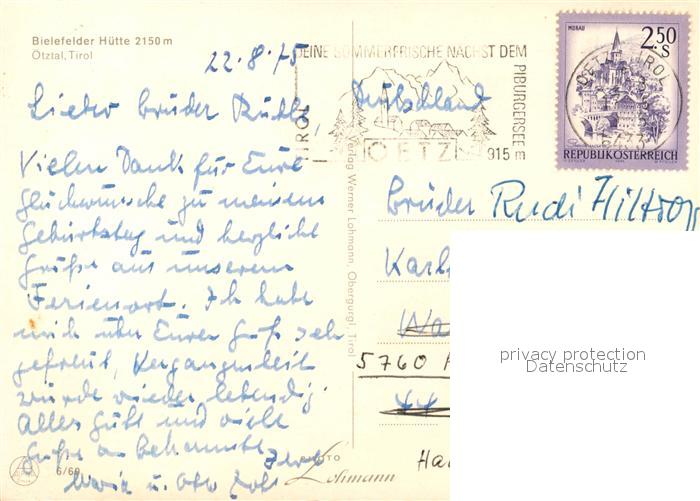 Bielefelder Hütte 2150 m
Ötztal, Tirol
22.8.75
DEINE SOMMERFRISCHE NÄCHST DEM
PIBURGERSEE
915 m
TIROL
OETZ
MURAU
2.50
S
OETZ TIROL
REPUBLIK ÖSTERREICH
Lieber Bruder
Deutschland
Vielen Dank für Eure
Glückwünsche zu meinem
Geburtstag und herzliche
Grüße aus unserem
Ferienort. Ich habe
mich über Euren Gruß sehr
gefreut, Vergangenheit
wurde wieder lebendig.
Alles Gute und viele
Grüße an Bekannte
Maria u. Otto
Verlag Werner Lohmann, Obergurgl, Tirol
Bruder Rudi
5760
privacy protection
Datenschutz
6/69
FOTO
Lohmann